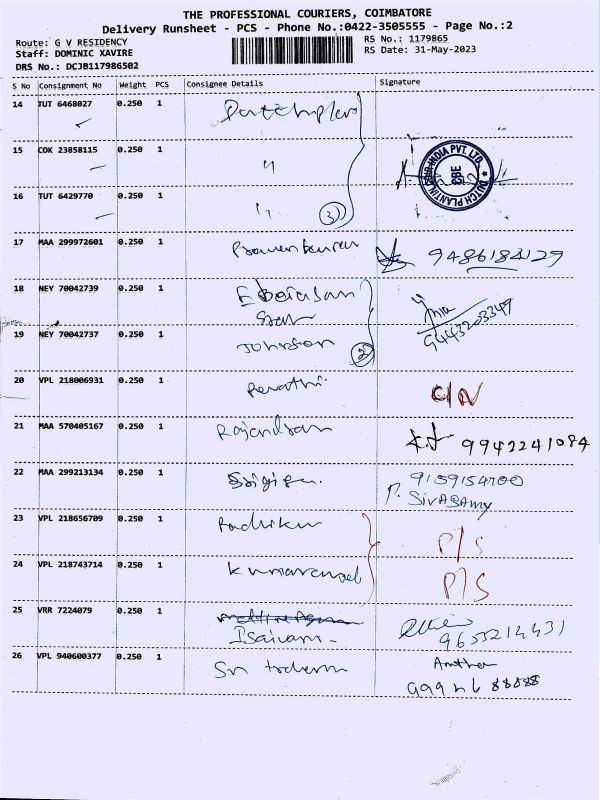 THE PROFESSIONAL COURIERS, COIMBATORE
Delivery Runsheet - PCS - Phone No.:0422-3505555 - Page No.:2
Route: G V RESIDENCY
RS No.: 1179865
Staff: DOMINIC XAVIRE
RS Date: 31-May-2023
DRS No.: DCJB117986502
S No Consignment No Weight PCS Consignee Details Signature
14 TUT 6468027 0.250 1
15 COK 23858115 0.250 1 "
DUTCH PLANTIN COIR INDIA PVT. LTD. CBE
16 TUT 6429770 0.250 1 " 3
17 MAA 299972601 0.250 1 9486184129
18 NEY 70042739 0.250 1
9443203349
19 NEY 70042737 0.250 1 Johnson 2
20 VPL 218006931 0.250 1 Revathi C/N
21 MAA 570405167 0.250 1 9942241084
22 MAA 299213134 0.250 1 9159154700
P. SIVASAMY
23 VPL 218656709 0.250 1 Radhika P/S
24 VPL 218743714 0.250 1 Kumaravel P/S
25 VRR 7224079 0.250 1
Isaivani 9655214431
26 VPL 940600377 0.250 1 Sri